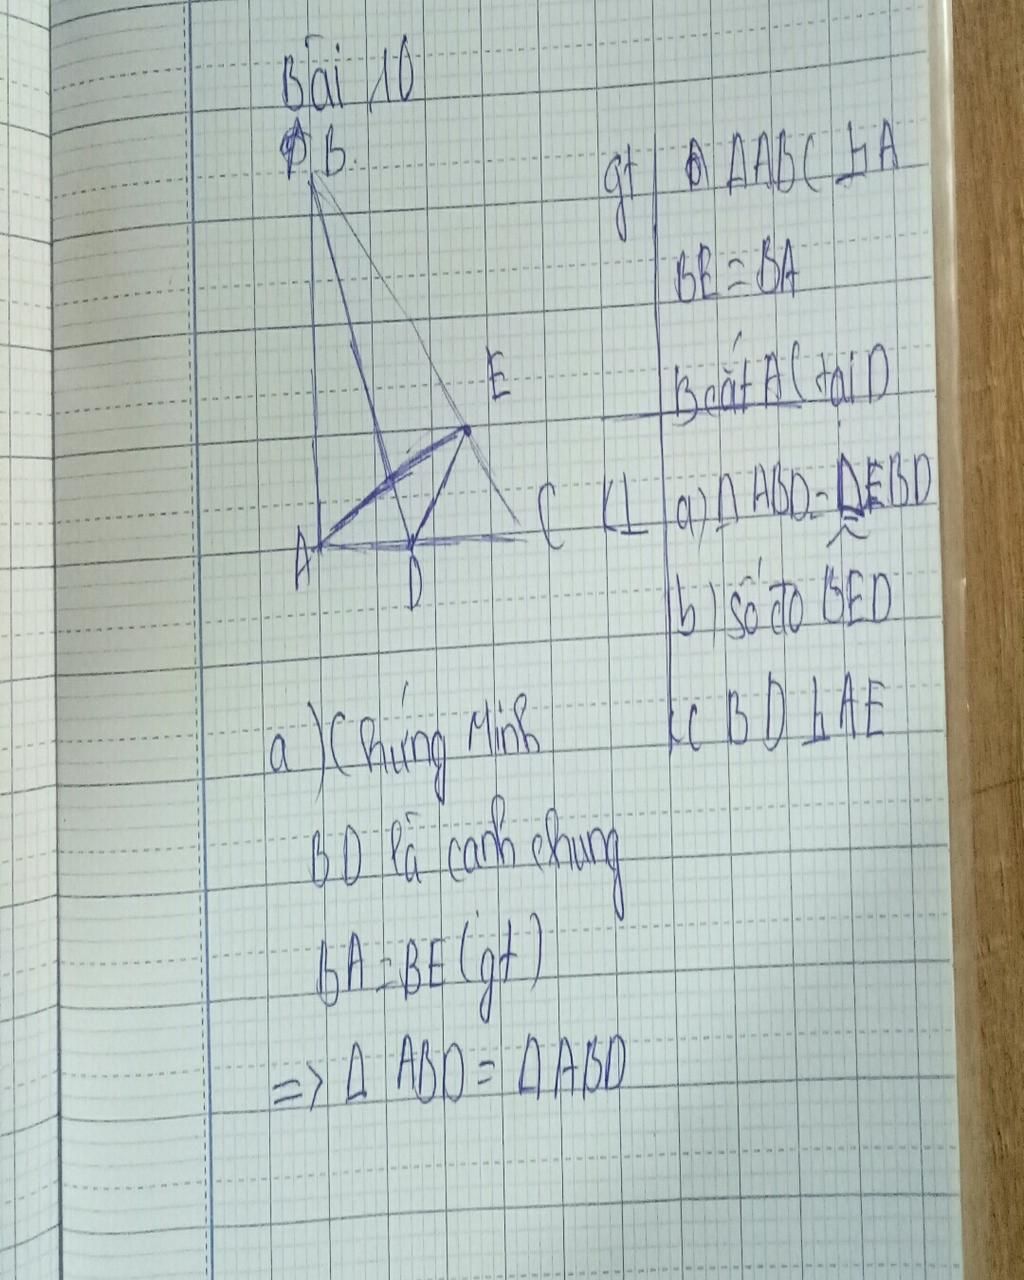 Bài 10
B
gt ΔABC ⊥ A
BE = BA
B cắt AC tại D
E
A
D
C
KL a) Δ ABD = ΔEBD
b) số đo BED
c BD ⊥ AE
a) Chứng Minh
BD là cạnh chung
BA = BE (gt)
=> Δ ABD = Δ ABD